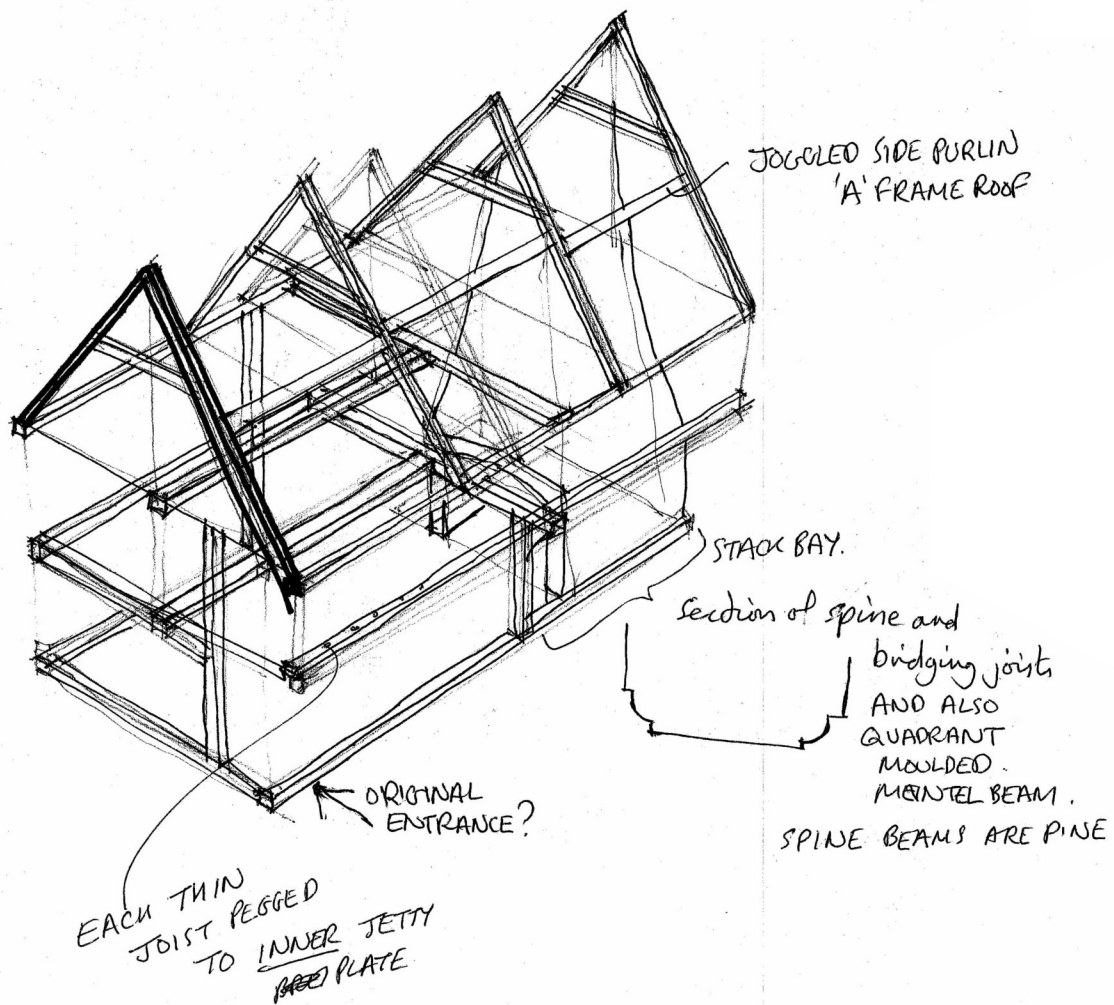 JOGGLED SIDE PURLIN
'A' FRAME ROOF
STACK BAY.
Section of spine and
bridging joists
AND ALSO
QUADRANT
MOULDED.
MEINTEL BEAM.
SPINE BEAMS ARE PINE
ORIGINAL
ENTRANCE?
EACH THIN
JOIST PEGGED
TO INNER JETTY
PLATE